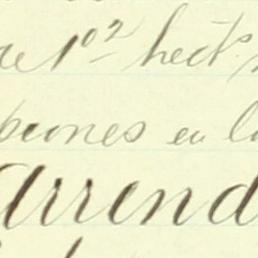 re 1º2 hects.
peones en la
Arrend